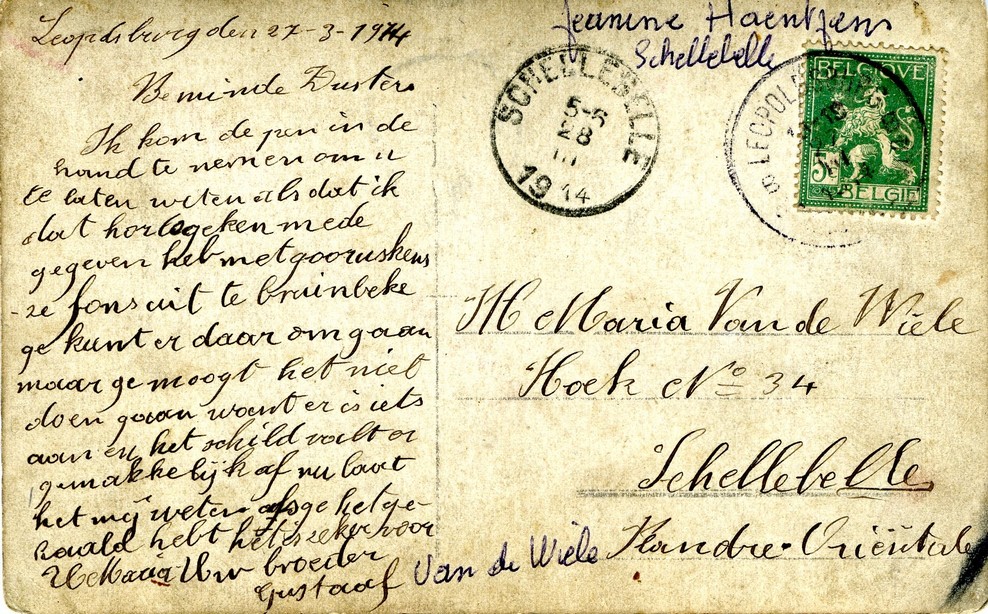 Leopdsburg den 27-3-1914
Beminde Zusters
Ik kom de pen in de
hand te nemen om u
te laten weten als dat ik
dat horlogeken mede
gegeven heb met gooruskens
ze fons uit te bruinbeke
ge kunt er daar om gaan
maar ge moogt het niet
doen gaan want er is iets
aan en het schild valt er
gemakkelijk af nu laat
het mij weten als ge het ge-
haald hebt het is zeker voor
Maria Uw broeder
Gustaaf Van de Wiele
Jeanine Haentjens
Schellebelle
SCHELLEBELLE
5-6
28
III
1914
LEOPOL
BELGIQUE
5
BELGIË
M Maria Van de Wiele
Hoek No 34
Schellebelle
Flandre-Oriëntale